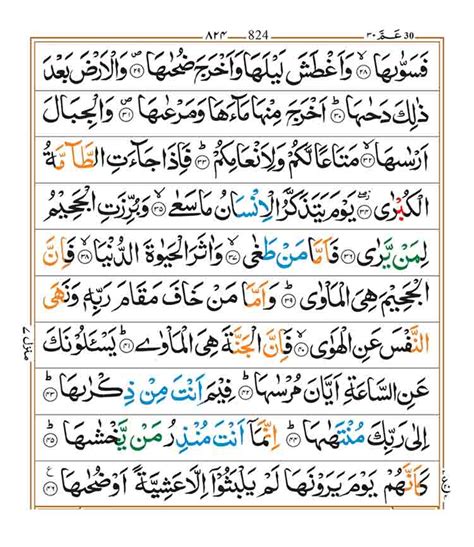 ٨٢٤ 824 عَمَّ ٣٠ 30
فَسَوّٰىهَا ﴿٢٨﴾ وَاَغْطَشَ لَيْلَهَا وَاَخْرَجَ ضُحٰىهَا ﴿٢٩﴾ وَالْاَرْضَ بَعْدَ
ذٰلِكَ دَحٰىهَا ﴿٣٠﴾ اَخْرَجَ مِنْهَا مَآءَهَا وَمَرْعٰىهَا ﴿٣١﴾ وَالْجِبَالَ
اَرْسٰىهَا ﴿٣٢﴾ مَتَاعًا لَّكُمْ وَلِاَنْعَامِكُمْ ﴿٣٣﴾ فَاِذَا جَآءَتِ الطَّآمَّةُ
الْكُبْرٰى ﴿٣٤﴾ يَوْمَ يَتَذَكَّرُ الْاِنْسَانُ مَا سَعٰى ﴿٣٥﴾ وَبُرِّزَتِ الْجَحِيْمُ
لِمَنْ يَّرٰى ﴿٣٦﴾ فَاَمَّا مَنْ طَغٰى ﴿٣٧﴾ وَاٰثَرَ الْحَيٰوةَ الدُّنْيَا ﴿٣٨﴾ فَاِنَّ
الْجَحِيْمَ هِىَ الْمَاْوٰى ﴿٣٩﴾ وَاَمَّا مَنْ خَافَ مَقَامَ رَبِّهٖ وَنَهَى
النَّفْسَ عَنِ الْهَوٰى ﴿٤٠﴾ فَاِنَّ الْجَنَّةَ هِىَ الْمَاْوٰى ﴿٤١﴾ يَسْئَلُوْنَكَ
عَنِ السَّاعَةِ اَيَّانَ مُرْسٰىهَا ﴿٤٢﴾ فِيْمَ اَنْتَ مِنْ ذِكْرٰىهَا ﴿٤٣﴾
اِلٰى رَبِّكَ مُنْتَهٰىهَا ﴿٤٤﴾ اِنَّمَآ اَنْتَ مُنْذِرُ مَنْ يَّخْشٰىهَا ﴿٤٥﴾
كَاَنَّهُمْ يَوْمَ يَرَوْنَهَا لَمْ يَلْبَثُوْٓا اِلَّا عَشِيَّةً اَوْ ضُحٰىهَا ﴿٤٦﴾
منزل ٧